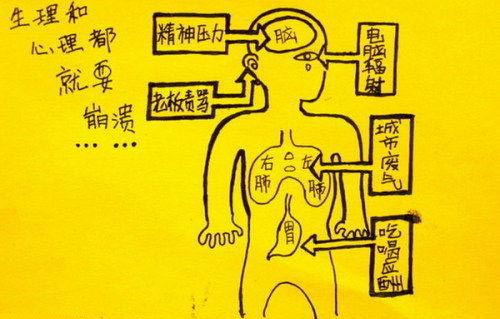 生理和
心理都
就要
崩溃
… …
精神压力
脑
电脑辐射
老板责骂
城市废气
右肺
左肺
胃
吃喝应酬